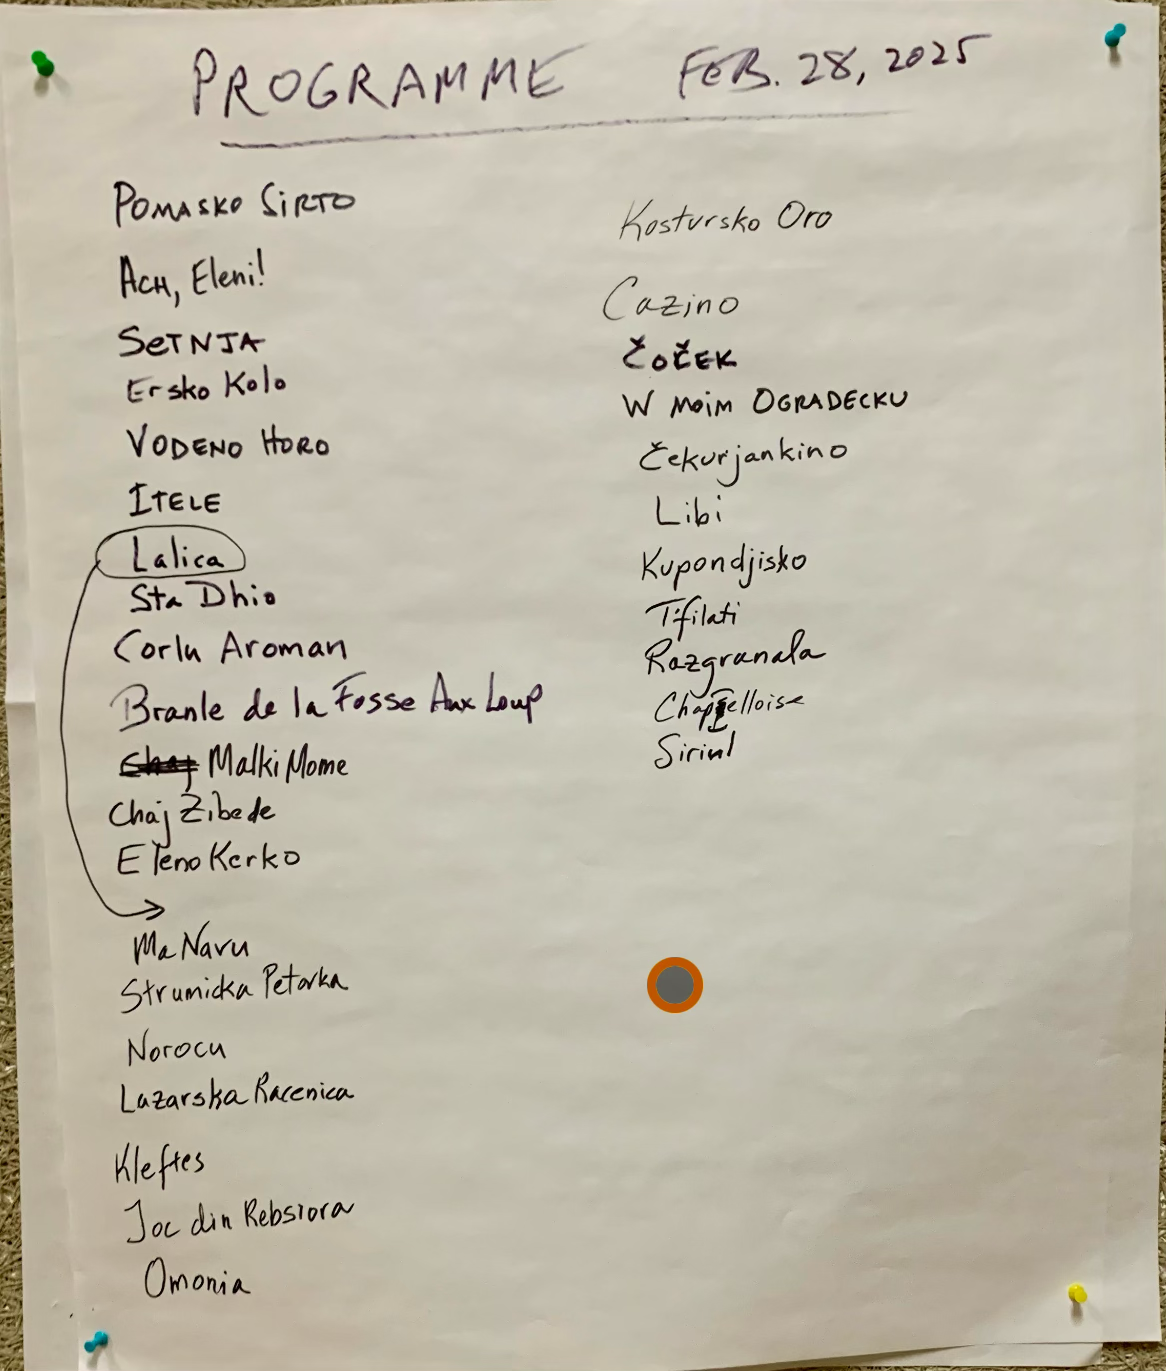 PROGRAMME FEB. 28, 2025
POMASKO SIRTO
ACH, Eleni!
SETNJA
Ersko Kolo
VODENO HORO
ITELE
Lalica
Sta Dhio
Corlu Aroman
Branle de la Fosse Aux Loup
Malki Mome
Chaj Zibede
Eleno Kerko
Ma Navu
Strumicka Petorka
Norocu
Lazarska Racenica
Kleftes
Joc din Rebsiora
Omonia
Kostursko Oro
Cazino
ČOČEK
W MOIM OGRADECKU
Čekurjankino
Libi
Kupondjisko
Tfilati
Razgranala
Chapelloise
Sirinl